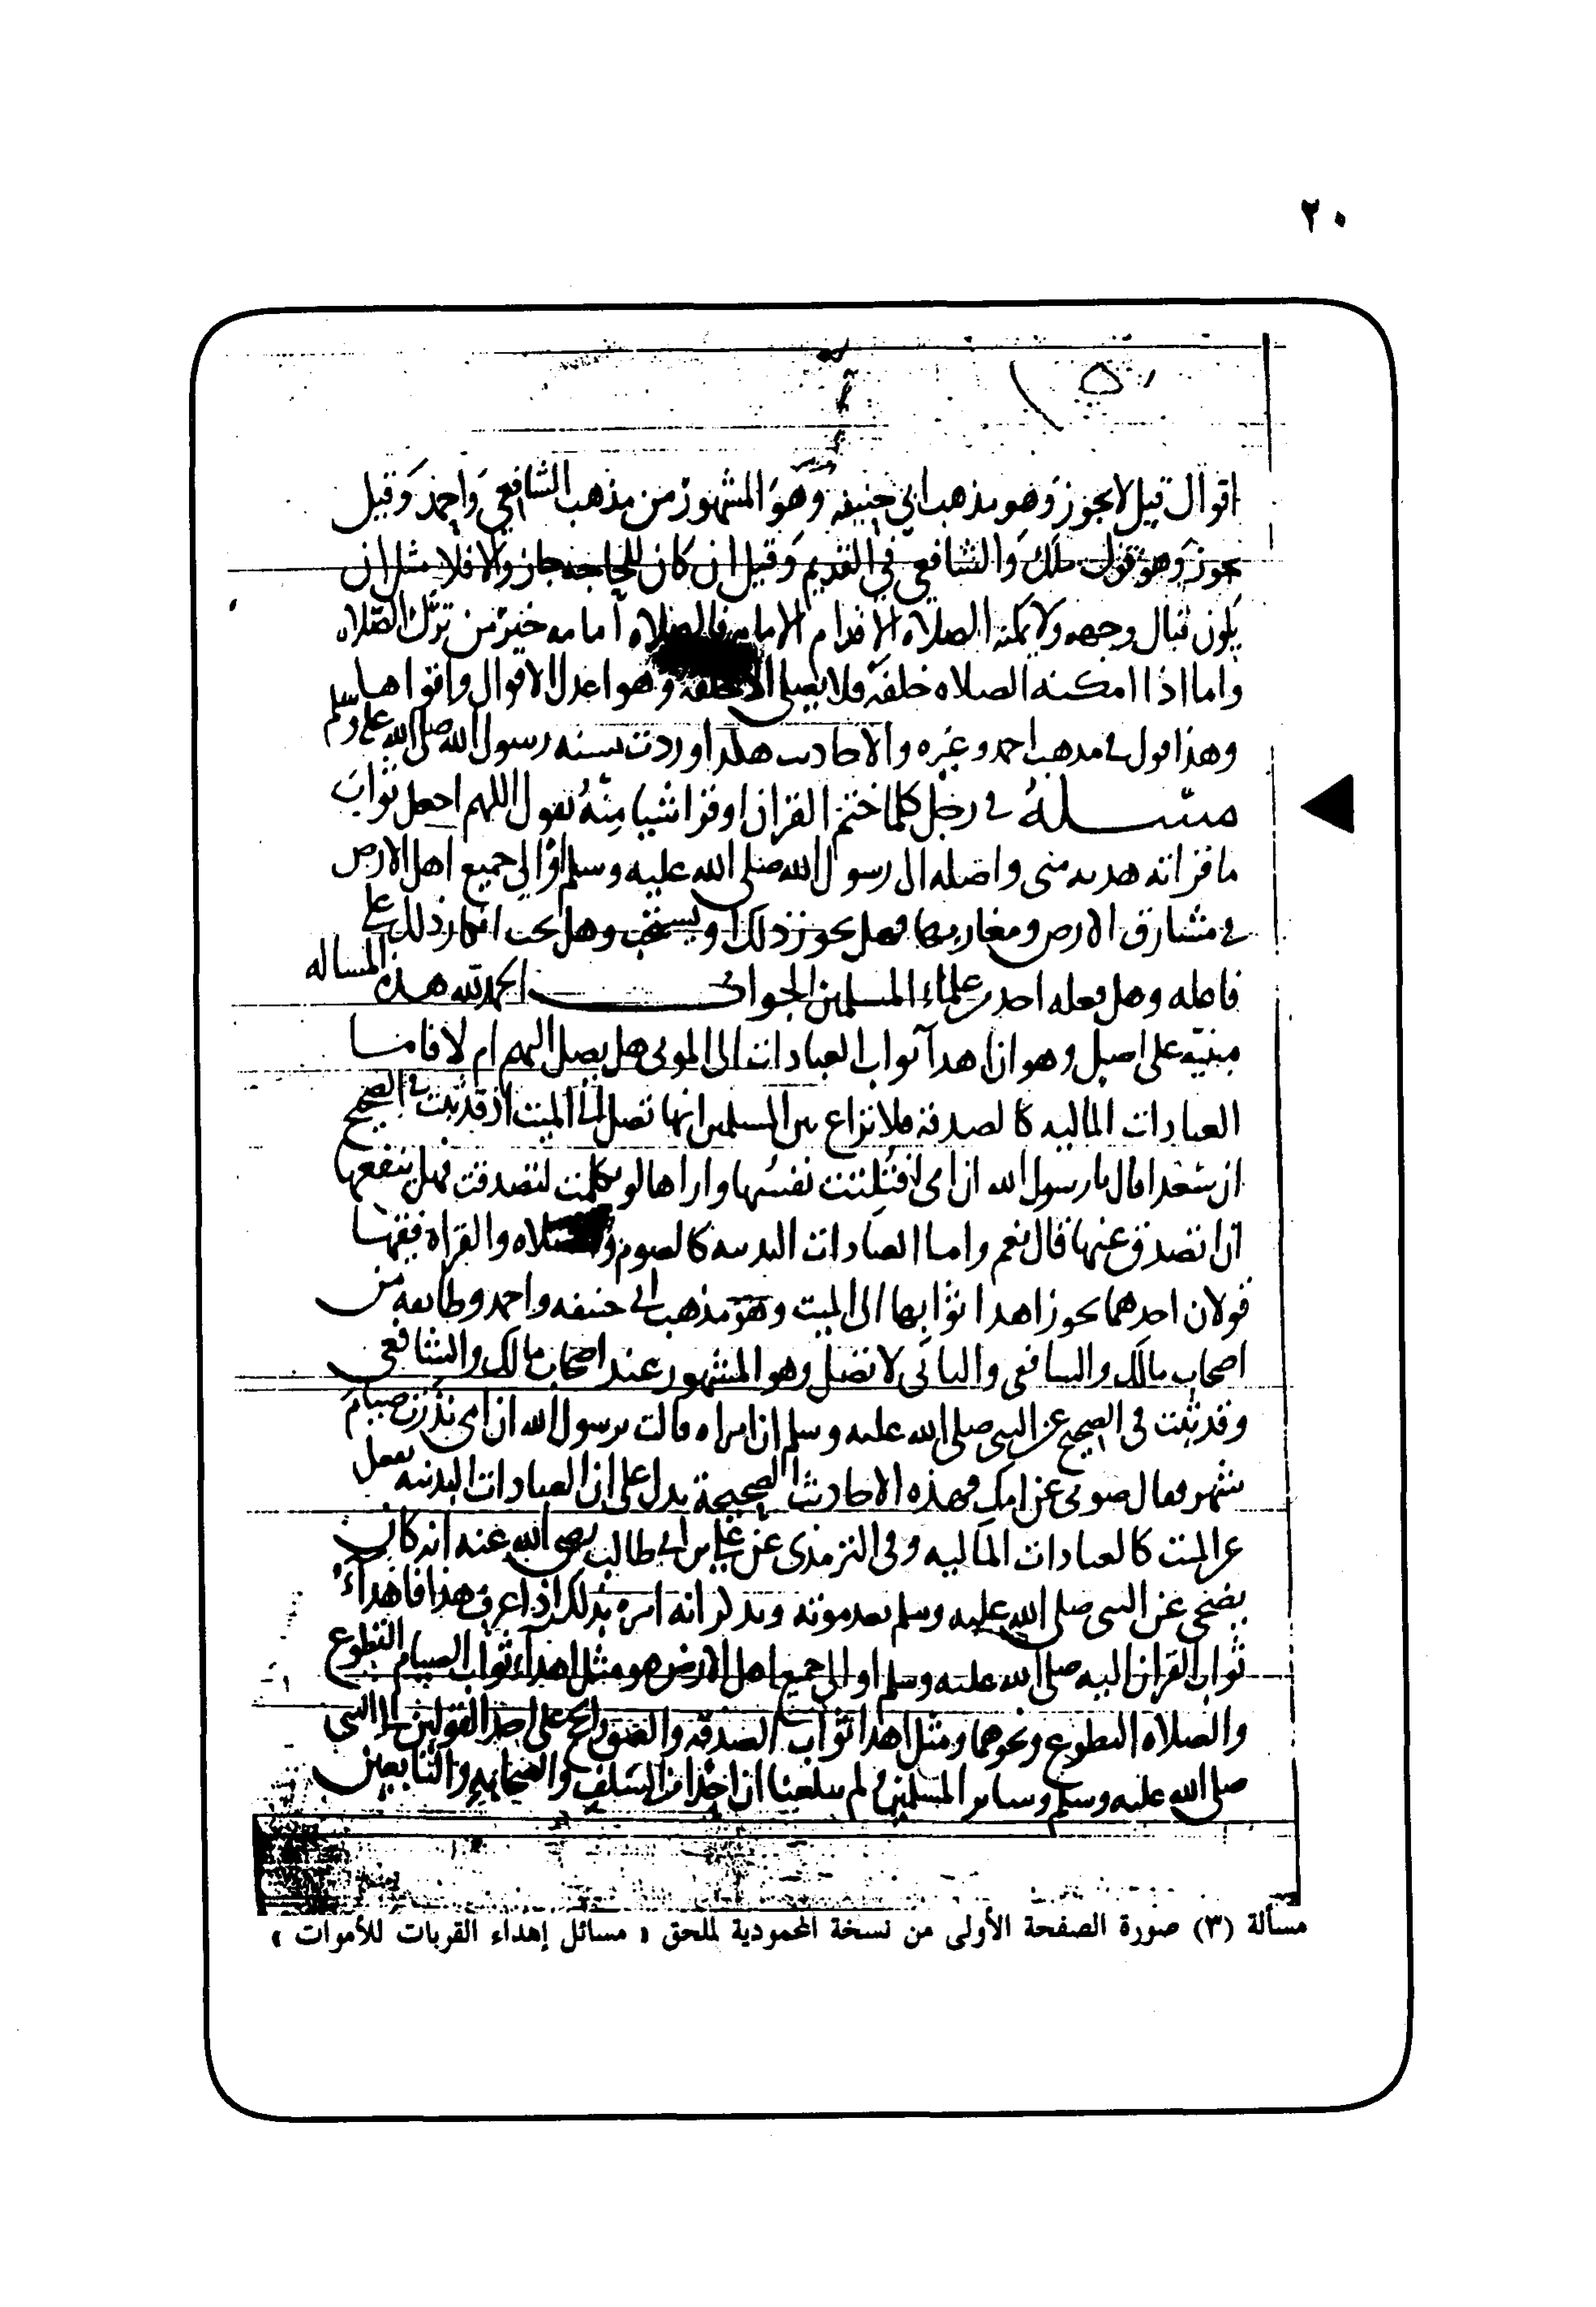 ٢٠
اقوال قيل لا يجوز وهو مذهب ابي حنيفه وهو المشهور من مذهب الشافعي واحمد وقيل
يجوز وهو قول ملك والشافعي في القديم وقيل ان كان للحاجه جاز والا فلا مثل ان
يكون قبال وجهه ولا يمكنه الصلاه الا قدام الامام فالصلاه امامه خير من ترك الصلاه
واما اذا امكنه الصلاه خلفه فلا يصلي الا خلفه وهو اعدل الاقوال واقواها
وهذا قول في مذهب احمد وغيره والاحاديث هكذا وردت بسنه رسول الله صلى الله عليه وسلم
مسله في رجل كلما ختم القران او قرا شيا منه يقول اللهم اجعل ثواب
ما قراته هديه مني واصله الى رسول الله صلى الله عليه وسلم او الى جميع اهل الارض
في مشارق الارض ومغاربها فهل يجوز ذلك او يستحب وهل يجب انكار ذلك على
فاعله وهل فعله احد من علماء المسلمين الجواب الحمد لله هذه المساله
مبنيه على اصل وهو ان اهدآ ثواب العبادات الى الموتى هل يصل اليهم ام لا فاما
العبادات الماليه كالصدقه فلا نزاع بين المسلمين انها تصل الى الميت اذ قد ثبت في الصحيح
ان سعدا قال يا رسول الله ان امي افتلتت نفسها واراها لو تكلمت لتصدقت فهل ينفعها
ان اتصدق عنها قال نعم واما العبادات البدنيه كالصوم والصلاه والقراه ففيها
قولان احدهما يجوز اهدا ثوابها الى الميت وهو مذهب ابي حنيفه واحمد وطايفه من
اصحاب مالك والشافعي والثاني لا تصل وهو المشهور عند اصحاب مالك والشافعي
وقد ثبت في الصحيح عن النبي صلى الله عليه وسلم ان امراه قالت يرسول الله ان امي نذرت صيام
شهر فقال صومي عن امك فهذه الاحاديث الصحيحة يدل على ان العبادات البدنيه تفعل
عن الميت كالعبادات الماليه وفي الترمذي عن علي بن ابي طالب رضي الله عنه انه كان
يضحي عن النبي صلى الله عليه وسلم بعد موته ويذكر انه امره بذلك اذا عرف هذا فاهدآء
ثواب القران اليه صلى الله عليه وسلم او الى جميع اهل الارض هو مثل اهدآء ثواب الصيام التطوع
والصلاه التطوع ونحوهما ومثل اهدا ثواب الصدقه والعتق والحج على احد القولين الى النبي
صلى الله عليه وسلم وساير المسلمين لم يبلغنا ان احدا من السلف والصحابه والتابعين
مسألة (٣) صورة الصفحة الأولى من نسخة المحمودية لملحق « مسائل إهداء القربات للأموات »